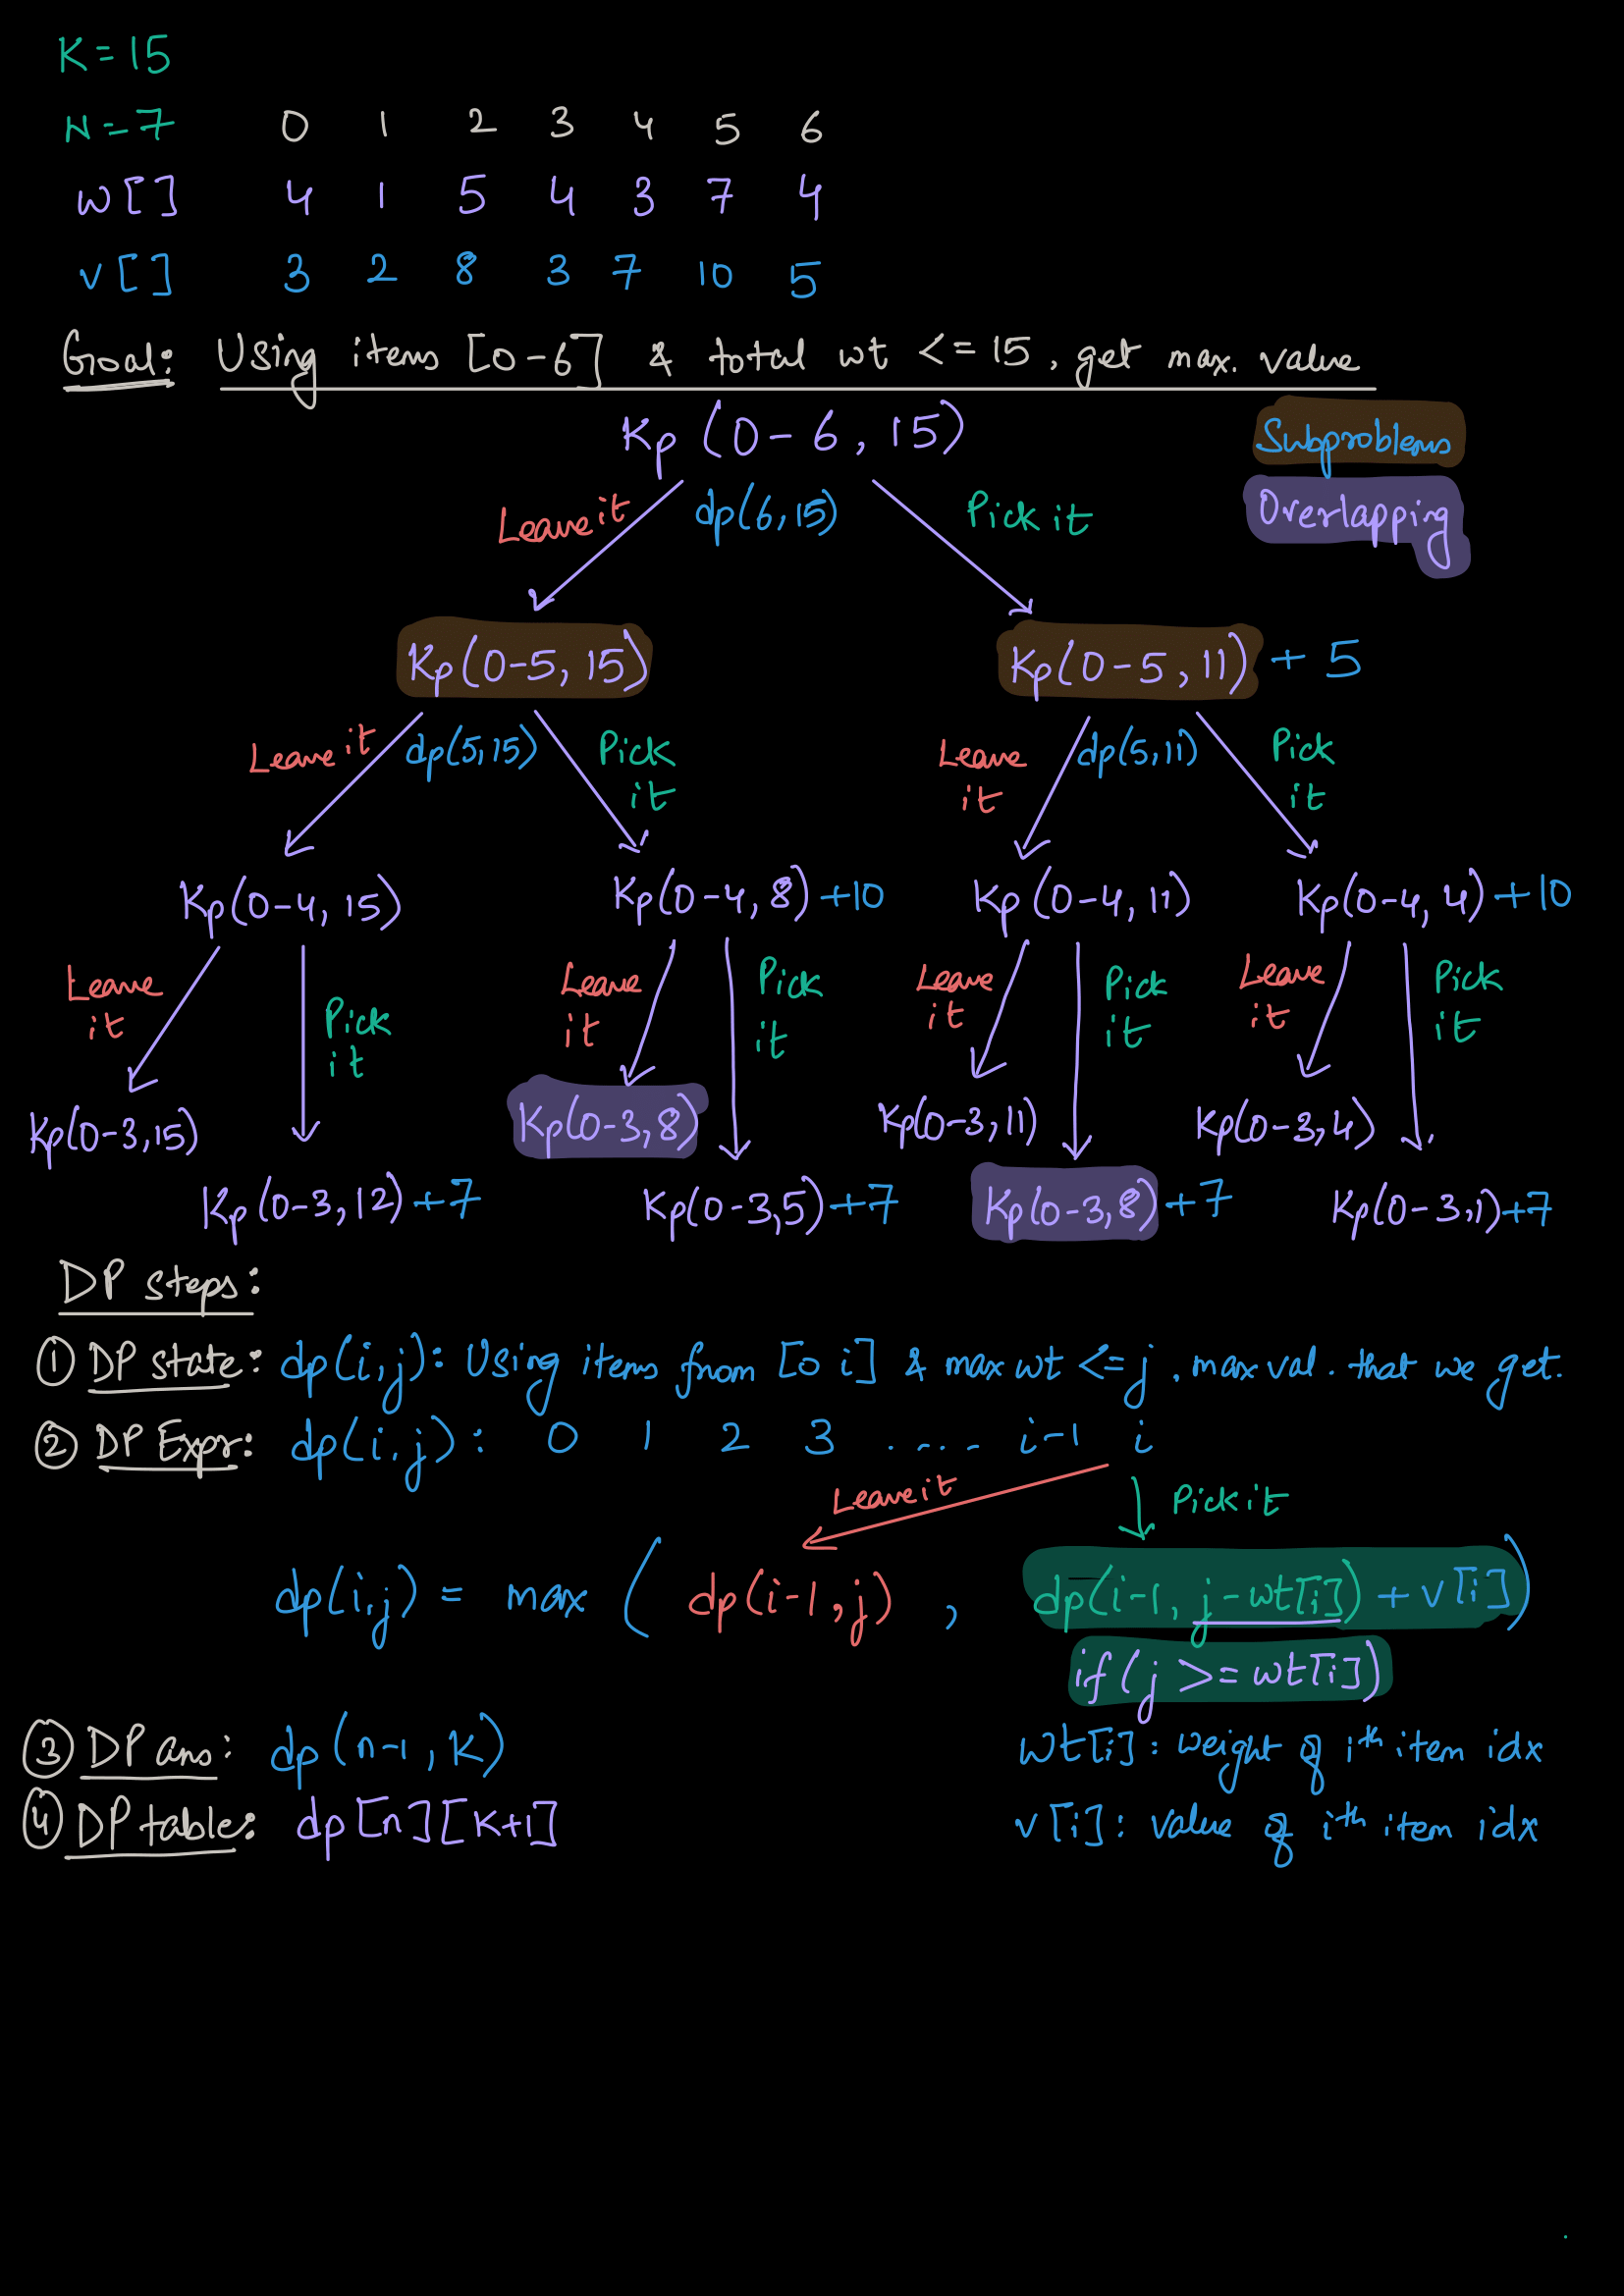 K=15
N=7 0 1 2 3 4 5 6
w[] 4 1 5 4 3 7 4
v[] 3 2 8 3 7 10 5
Goal: Using items [0-6] & total wt <=15, get max. value
Kp(0-6, 15)
Subproblems
Overlapping
Leave it dp(6,15) Pick it
Kp(0-5, 15) Kp(0-5, 11) + 5
Leave it dp(5,15) Pick it Leave it dp(5,11) Pick it
Kp(0-4, 15) Kp(0-4, 8)+10 Kp(0-4, 11) Kp(0-4, 4)+10
Leave it Pick it Leave it Pick it Leave it Pick it Leave it Pick it
Kp(0-3,15) Kp(0-3,8) Kp(0-3,11) Kp(0-3,4)
Kp(0-3,12)+7 Kp(0-3,5)+7 Kp(0-3,8)+7 Kp(0-3,1)+7
DP steps:
① DP state: dp(i,j): Using items from [0 i] & max wt <=j, max val. that we get.
② DP Expr: dp(i,j): 0 1 2 3 ..... i-1 i
Leave it Pick it
dp(i,j) = max ( dp(i-1,j) , dp(i-1, j-wt[i]) + v[i] )
if (j >= wt[i])
③ DP ans: dp(n-1, K) wt[i]: weight of ith item idx
④ DP table: dp[n][K+1] v[i]: value of ith item idx